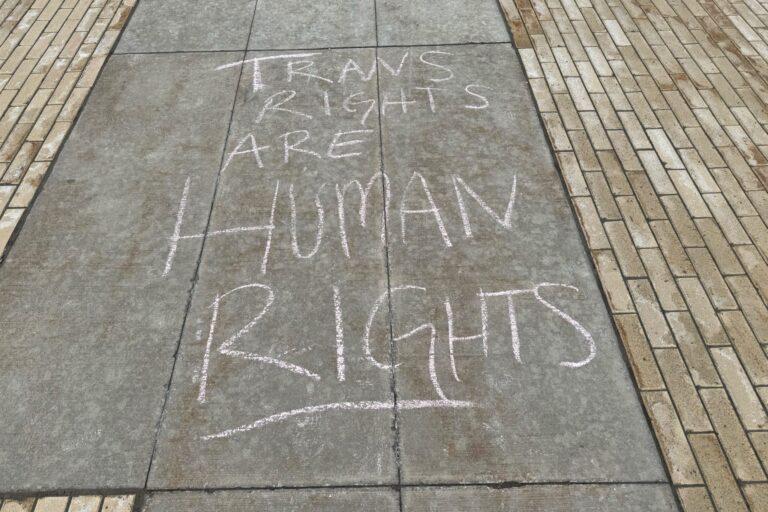 TRANS
RIGHTS
ARE
HUMAN
RIGHTS